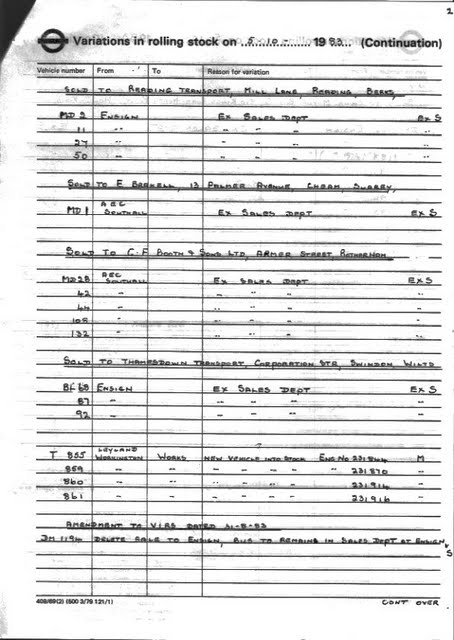 2
Variations in rolling stock on 5.10. 1983 (Continuation)
Vehicle number From To Reason for variation
SOLD TO READING TRANSPORT, MILL LANE, READING, BERKS,
MD 2 ENSIGN EX SALES DEPT EX S
11 " " " " "
27 " " " " "
50 " " " " "
SOLD TO E BREKELL, 13 PALMER AVENUE, CHEAM, SURREY,
MD 1 AEC SOUTHALL EX SALES DEPT EX S
SOLD TO C.F BOOTH & SONS LTD, ARMER STREET, ROTHERHAM
MD 28 AEC SOUTHALL EX SALES DEPT EX S
42 " " " " "
44 " " " " "
108 " " " " "
132 " " " " "
SOLD TO THAMESDOWN TRANSPORT, CORPORATION STR, SWINDON, WILTS
68 ENSIGN EX SALES DEPT EX S
87 " " " " "
92 " " " " "
T 855 LEYLAND WORKINGTON WORKS NEW VEHICLE INTO STOCK ENG NO 231844 M
859 " " " " " " " " 231870 "
860 " " " " " " " " 231914 "
861 " " " " " " " " 231916 "
AMENDMENT TO VIRS DATED 31-8-83
DM 1194 DELETE SALE TO ENSIGN, BUS TO REMAIN IN SALES DEPT AT ENSIGN, S
409/69(2) (500 3/79 121/1)
CONT OVER